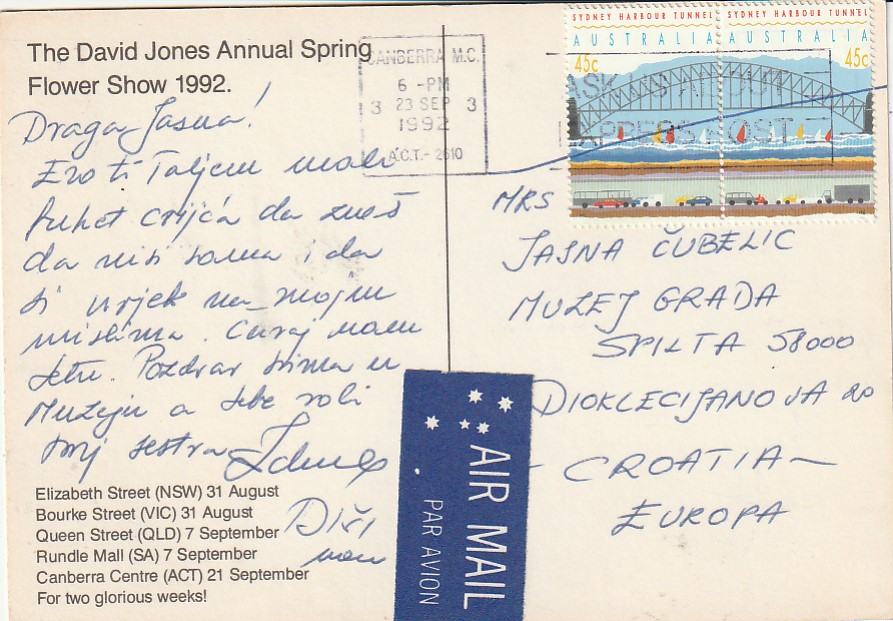 The David Jones Annual Spring
Flower Show 1992.
Draga Jasna!
Evo ti šaljem mali
buket cvijća da znaš
da nisi sama i da
si uvjek na mojim
mislima. Čuvaj nam
tetu. Pozdrav svima u
Muzeju a tebe voli
tvoj sestra
Elizabeth Street (NSW) 31 August
Bourke Street (VIC) 31 August
Queen Street (QLD) 7 September
Rundle Mall (SA) 7 September
Canberra Centre (ACT) 21 September
For two glorious weeks!
CANBERRA M.C.
6 -PM
3 23 SEP 3
1992
A.C.T.- 2610
ASK US ABOUT
EXPRESS POST
SYDNEY HARBOUR TUNNEL
AUSTRALIA
45c
SYDNEY HARBOUR TUNNEL
AUSTRALIA
45c
MRS
JASNA ČUBELIC
MUZEJ GRADA
SPILTA 58000
DIOKLECIJANOVA 20
- CROATIA -
EUROPA
AIR MAIL
PAR AVION